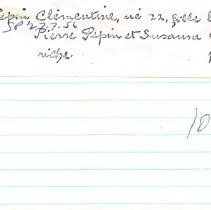 Pepin Clémentine, né 22, fille
58 2-27-56
Pierre Pepin et Susanna
riche.
10